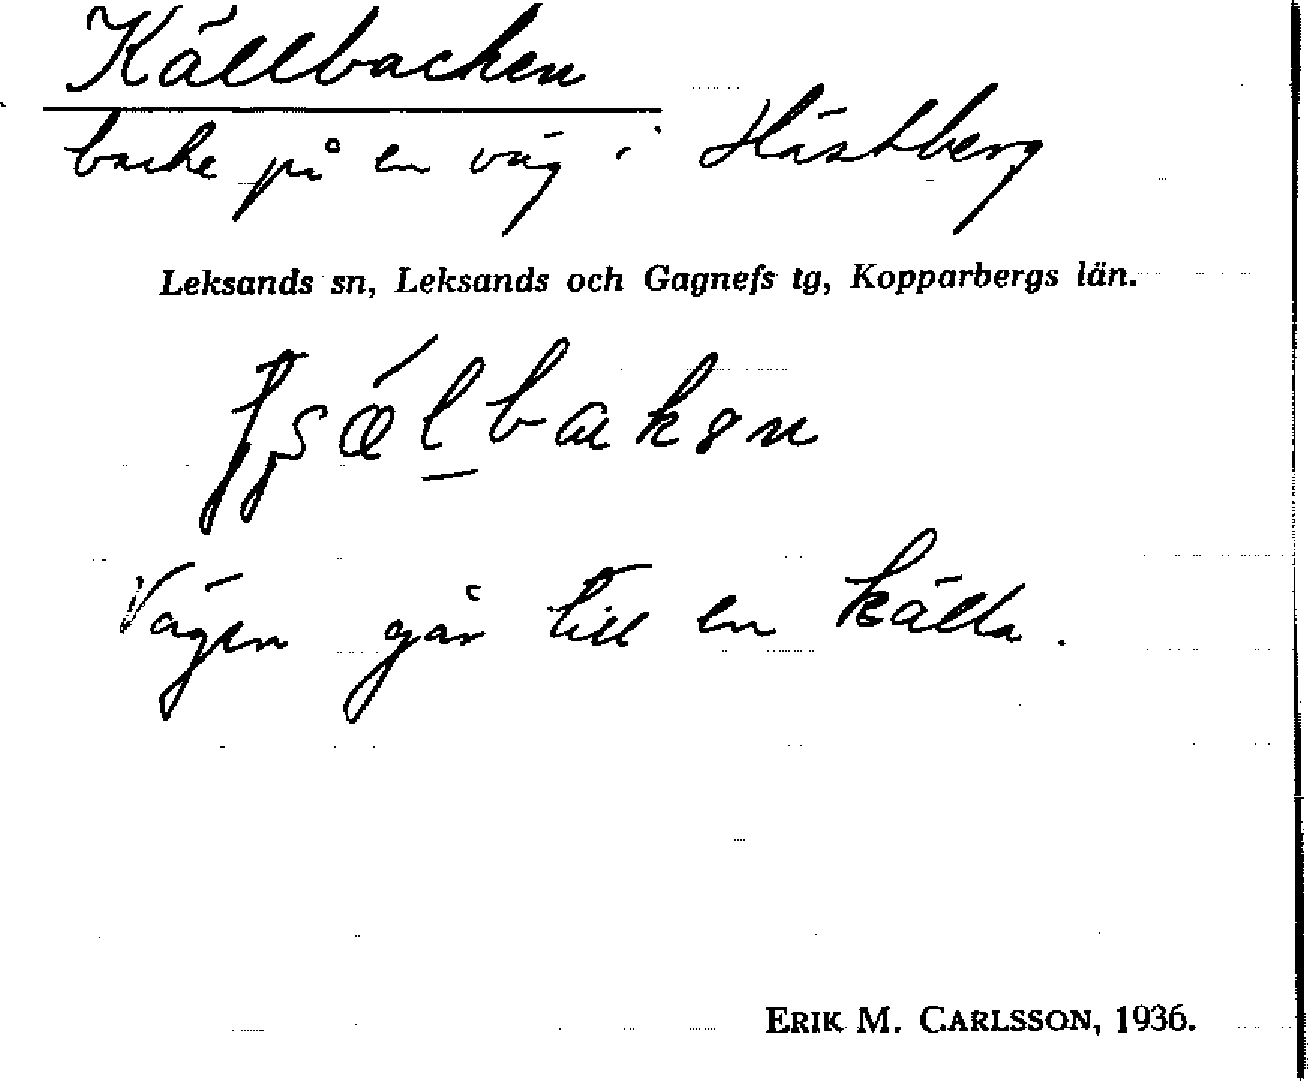 Källbacken
backe på en väg i Hästberg
Leksands sn, Leksands och Gagnefs tg, Kopparbergs län.
Vägen går till en källa.
ERIK M. CARLSSON, 1936.